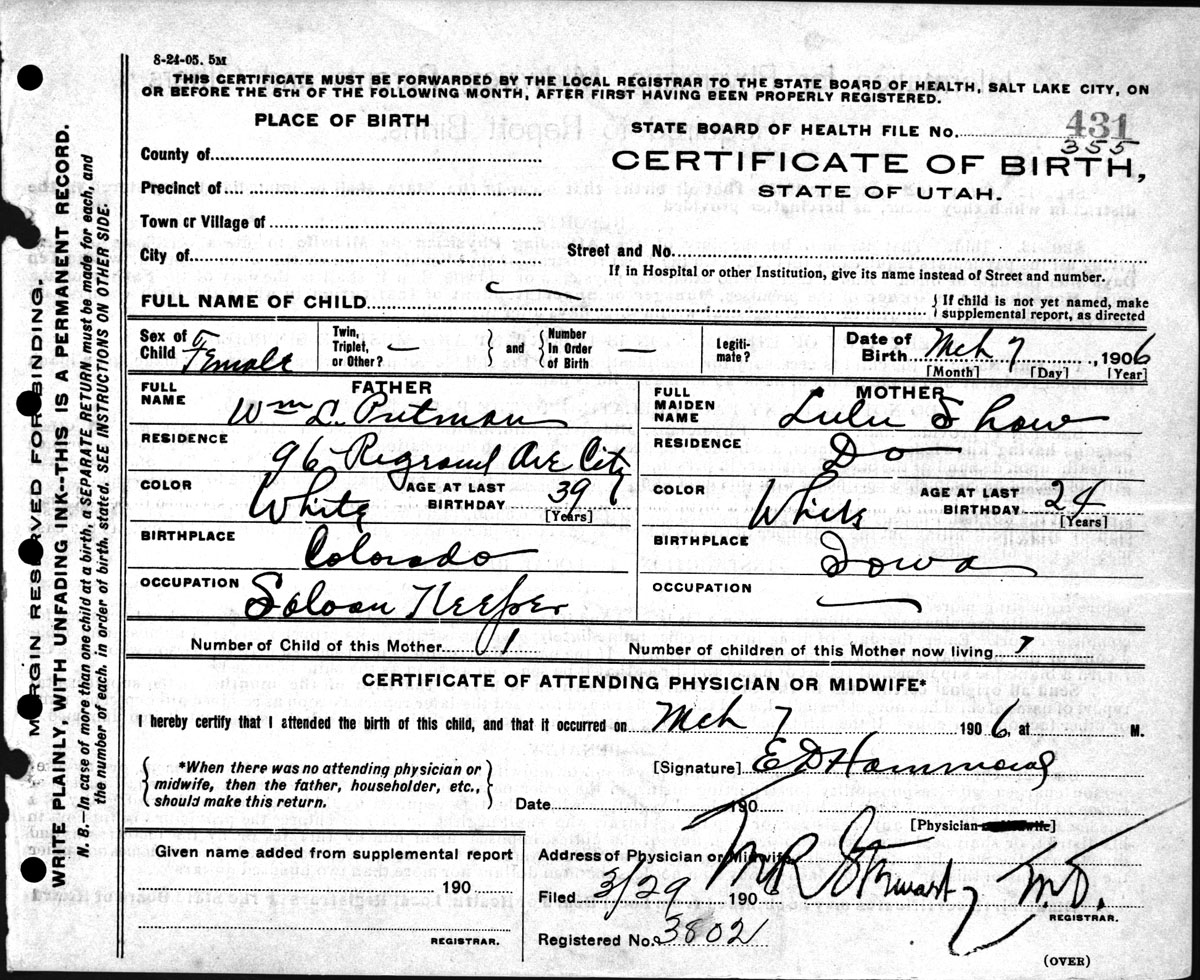 8-24-05. 5M
THIS CERTIFICATE MUST BE FORWARDED BY THE LOCAL REGISTRAR TO THE STATE BOARD OF HEALTH, SALT LAKE CITY, ON
OR BEFORE THE 5TH OF THE FOLLOWING MONTH, AFTER FIRST HAVING BEEN PROPERLY REGISTERED.
PLACE OF BIRTH
STATE BOARD OF HEALTH FILE No. 431
355
CERTIFICATE OF BIRTH,
STATE OF UTAH.
County of
Precinct of
Town or Village of
City of
Street and No.
If in Hospital or other Institution, give its name instead of Street and number.
FULL NAME OF CHILD
{ If child is not yet named, make
supplemental report, as directed
Sex of Child Female
Twin, Triplet, or Other? } and { Number In Order of Birth —
Legitimate?
Date of Birth Mch 7, 1906
[Month] [Day] [Year]
FATHER
FULL NAME Wm L. Putman
RESIDENCE 96 Regrand Ave City
COLOR White AGE AT LAST BIRTHDAY 39
[Years]
BIRTHPLACE Colorado
OCCUPATION Saloon Keeper
MOTHER
FULL MAIDEN NAME Lulu Show
RESIDENCE Do
COLOR White AGE AT LAST BIRTHDAY 24
[Years]
BIRTHPLACE Iowa
OCCUPATION
Number of Child of this Mother 1 Number of children of this Mother now living 1
CERTIFICATE OF ATTENDING PHYSICIAN OR MIDWIFE*
I hereby certify that I attended the birth of this child, and that it occurred on Mch 7 1906, at M.
{ *When there was no attending physician or
midwife, then the father, householder, etc.,
should make this return. }
[Signature] E D Hammond
Date 190
[Physician or Midwife]
Given name added from supplemental report
190
REGISTRAR.
Address of Physician or Midwife
Filed 3/29 190
M R Stewart M.D.
REGISTRAR.
Registered No. 3802
(OVER)
MARGIN RESERVED FOR BINDING.
WRITE PLAINLY, WITH UNFADING INK--THIS IS A PERMANENT RECORD.
N. B.—In case of more than one child at a birth, a SEPARATE RETURN must be made for each, and
the number of each, in order of birth, stated. SEE INSTRUCTIONS ON OTHER SIDE.